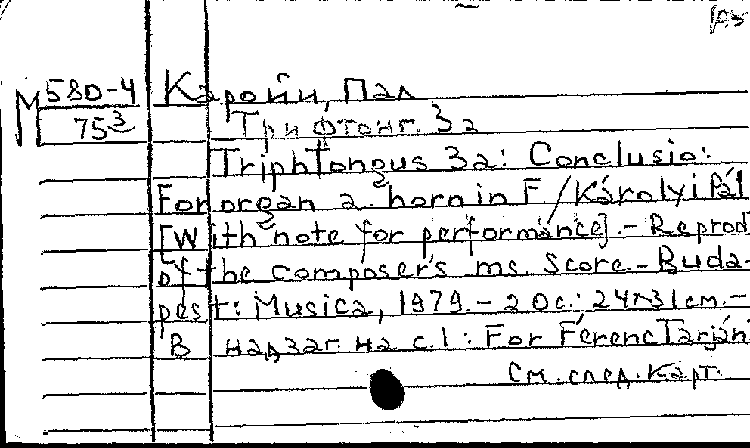 М 580-4
75³
Каройи, Пал
Трифтонг. 3а
Triphtongus 3a: Conclusio:
For organ a. horn in F / Károlyi Pál
[With note for performance]. - Reprod
of the composer's ms. Score. - Buda-
pest: Musica, 1979. - 20 с.; 24×31 см. -
В надзаг. на с. 1: For Ferenc Tarjáni
См. след. карт.